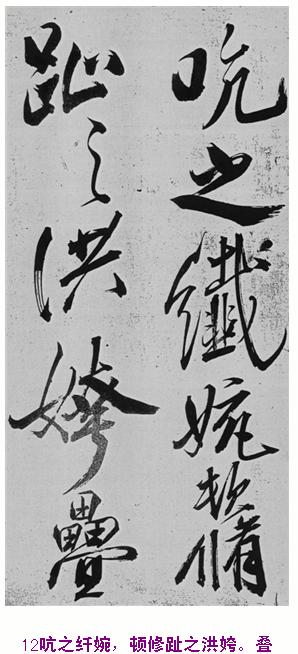 吭之纖婉頓脩
趾之洪姱疊
12吭之纤婉，顿修趾之洪姱。叠